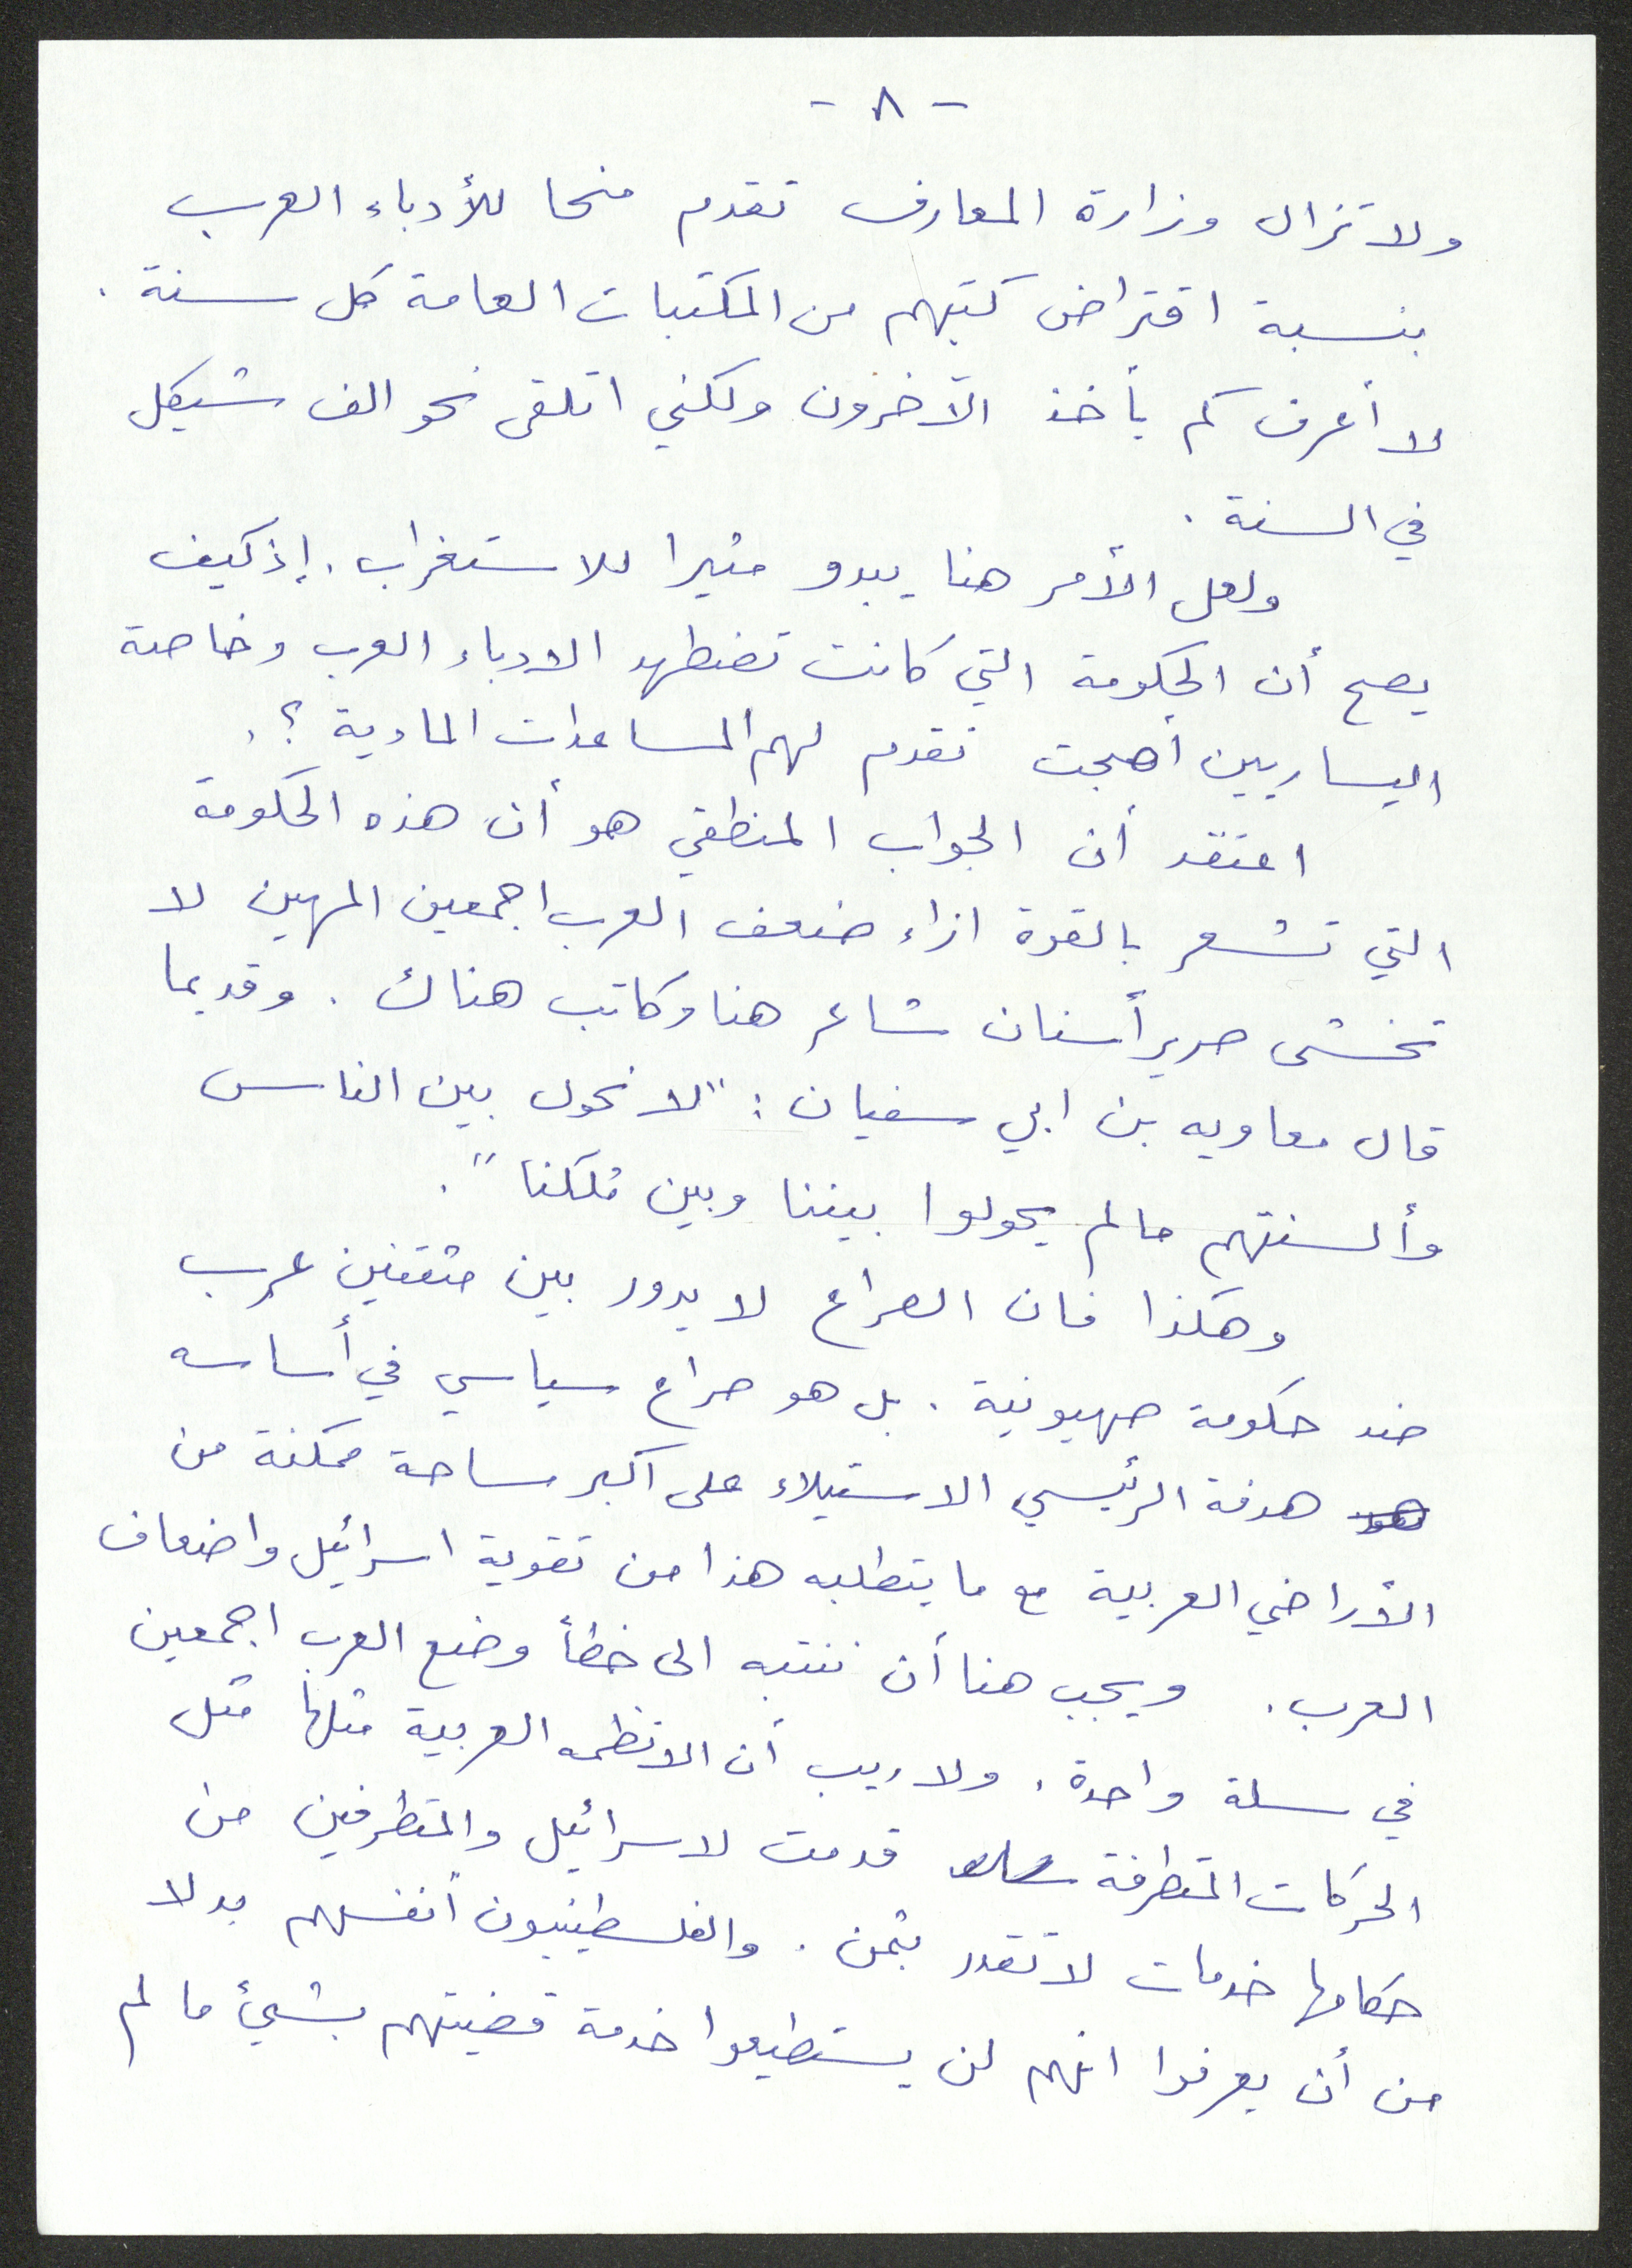 - ٨ -
ولا تزال وزارة المعارف تقدم منحا للأدباء العرب
بنسبة اقتراض كتبهم من المكتبات العامة كل سنة .
لا أعرف كم يأخذ الآخرون ولكني اتلقى نحو الف شيكل
في السنة .
ولعل الأمر هنا يبدو مثيرا للاستغراب . إذ كيف
يصح أن الحكومة التي كانت تضطهد الادباء العرب وخاصة
اليساريين أصبحت تقدم لهم المساعدات المادية ؟ .
اعتقد أن الجواب المنطقي هو أن هذه الحكومة
التي تشعر بالقوة ازاء ضعف العرب اجمعين المهين لا
تخشى صرير أسنان شاعر هنا وكاتب هناك . وقديما
قال معاويه بن ابي سفيان : "لا نحول بين الناس
وألسنتهم ما لم يحولوا بيننا وبين مُلكنا " .
وهكذا فان الصراع لا يدور بين مثقفين عرب
ضد حكومة صهيونية . بل هو صراع سياسي في أساسه
هدفة الرئيسي الاستيلاء على اكبر مساحة ممكنة من
الأراضي العربية مع ما يتطلبه هذا من تقوية اسرائيل واضعاف
العرب . ويجب هنا أن ننتبه الى خطأ وضع العرب اجمعين
في سلة واحدة . ولا ريب أن الانظمه العربية مثلها مثل
الحركات المتطرفة قدمت لاسرائيل والمتطرفين من
حكامها خدمات لا تقدر بثمن . والفلسطينيون أنفسهم بدلا
من أن يعرفوا انهم لن يستطيعوا خدمة قضيتهم بشيئ ما لم